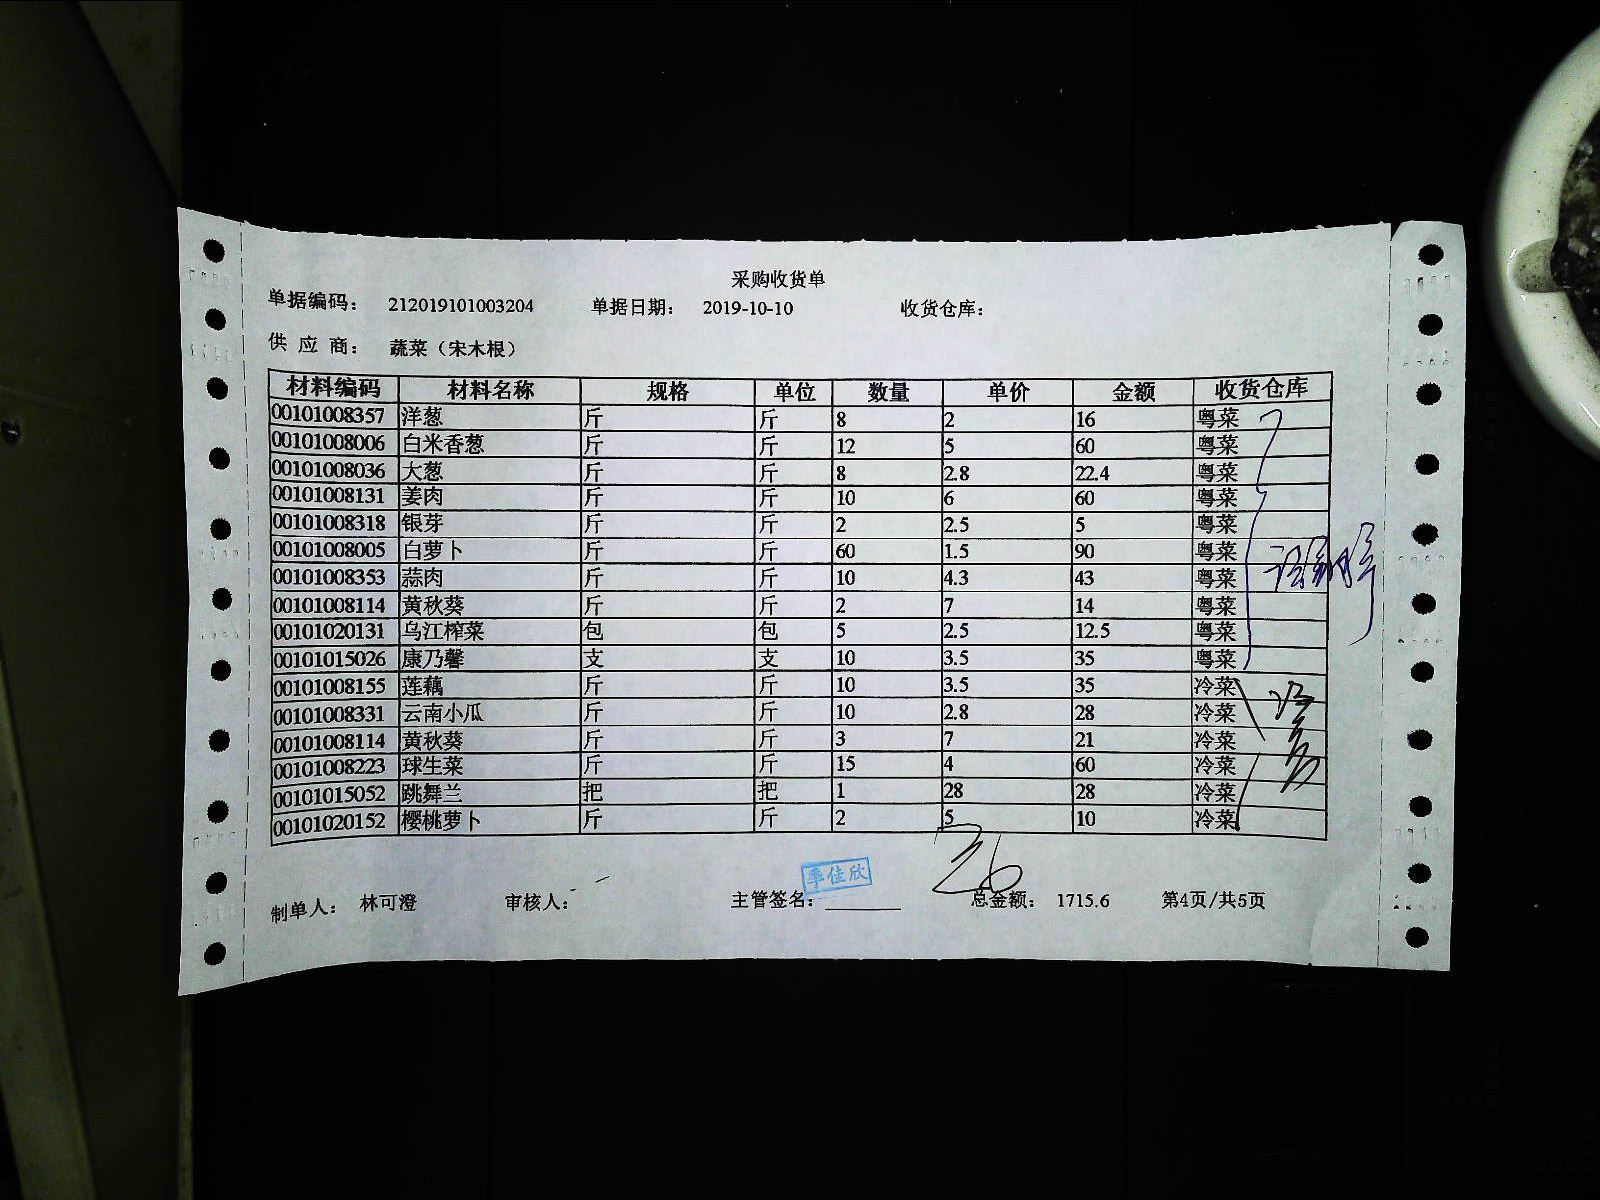 采购收货单
单据编码： 212019101003204 单据日期： 2019-10-10 收货仓库：
供 应 商： 蔬菜（宋木根）
材料编码 材料名称 规格 单位 数量 单价 金额 收货仓库
00101008357 洋葱 斤 斤 8 2 16 粤菜
00101008006 白米香葱 斤 斤 12 5 60 粤菜
00101008036 大葱 斤 斤 8 2.8 22.4 粤菜
00101008131 姜肉 斤 斤 10 6 60 粤菜
00101008318 银芽 斤 斤 2 2.5 5 粤菜
00101008005 白萝卜 斤 斤 60 1.5 90 粤菜
00101008353 蒜肉 斤 斤 10 4.3 43 粤菜
00101008114 黄秋葵 斤 斤 2 7 14 粤菜
00101020131 乌江榨菜 包 包 5 2.5 12.5 粤菜
00101015026 康乃馨 支 支 10 3.5 35 粤菜
00101008155 莲藕 斤 斤 10 3.5 35 冷菜
00101008331 云南小瓜 斤 斤 10 2.8 28 冷菜
00101008114 黄秋葵 斤 斤 3 7 21 冷菜
00101008223 球生菜 斤 斤 15 4 60 冷菜
00101015052 跳舞兰 把 把 1 28 28 冷菜
00101020152 樱桃萝卜 斤 斤 2 5 10 冷菜
季佳欣
制单人： 林可澄 审核人： 主管签名： 总金额： 1715.6 第4页/共5页